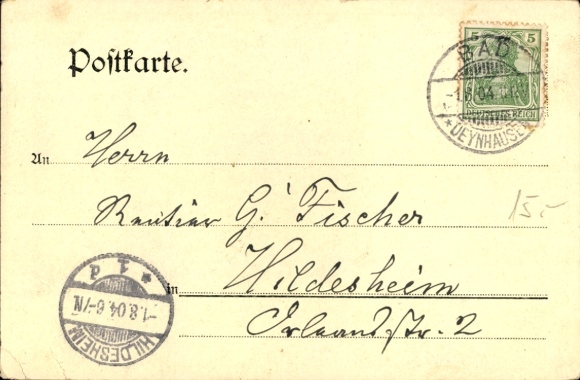 Postkarte.
5 5
DEUTSCHES REICH
BAD
-1.8.04
* OEYNHAUSEN
An Herrn
Rentier G. Fischer
15.-
in Hildesheim
str. 2
* 1 d
-1.8.04.6-7N.
HILDESHEIM